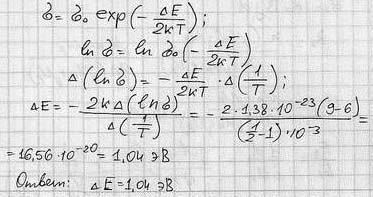 σ = σ₀ exp(- ΔE/2kT);
ln σ = ln σ₀ (- ΔE/2kT)
Δ(ln σ) = - ΔE/2kT · Δ(1/T);
ΔE = - 2kΔ(ln σ)/Δ(1/T) = - 2·1,38·10⁻²³(9-6)/(1/2-1)·10⁻³ =
= 16,56·10⁻²⁰ = 1,04 эВ
Ответ: ΔE = 1,04 эВ